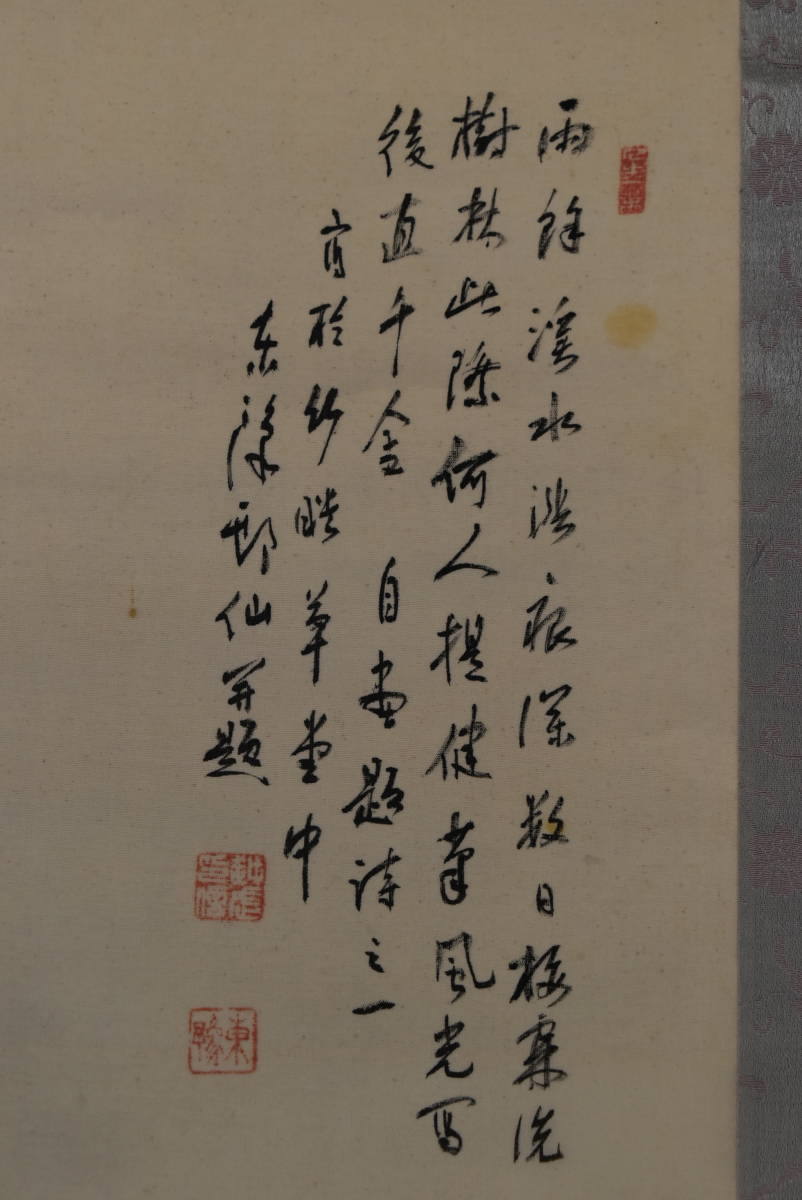 雨餘溪水漲痕深數日寒洗
樹林此際何人提健筆風光写
後直千金 自畫題詩之一
於竹草堂中
東邨仙并題